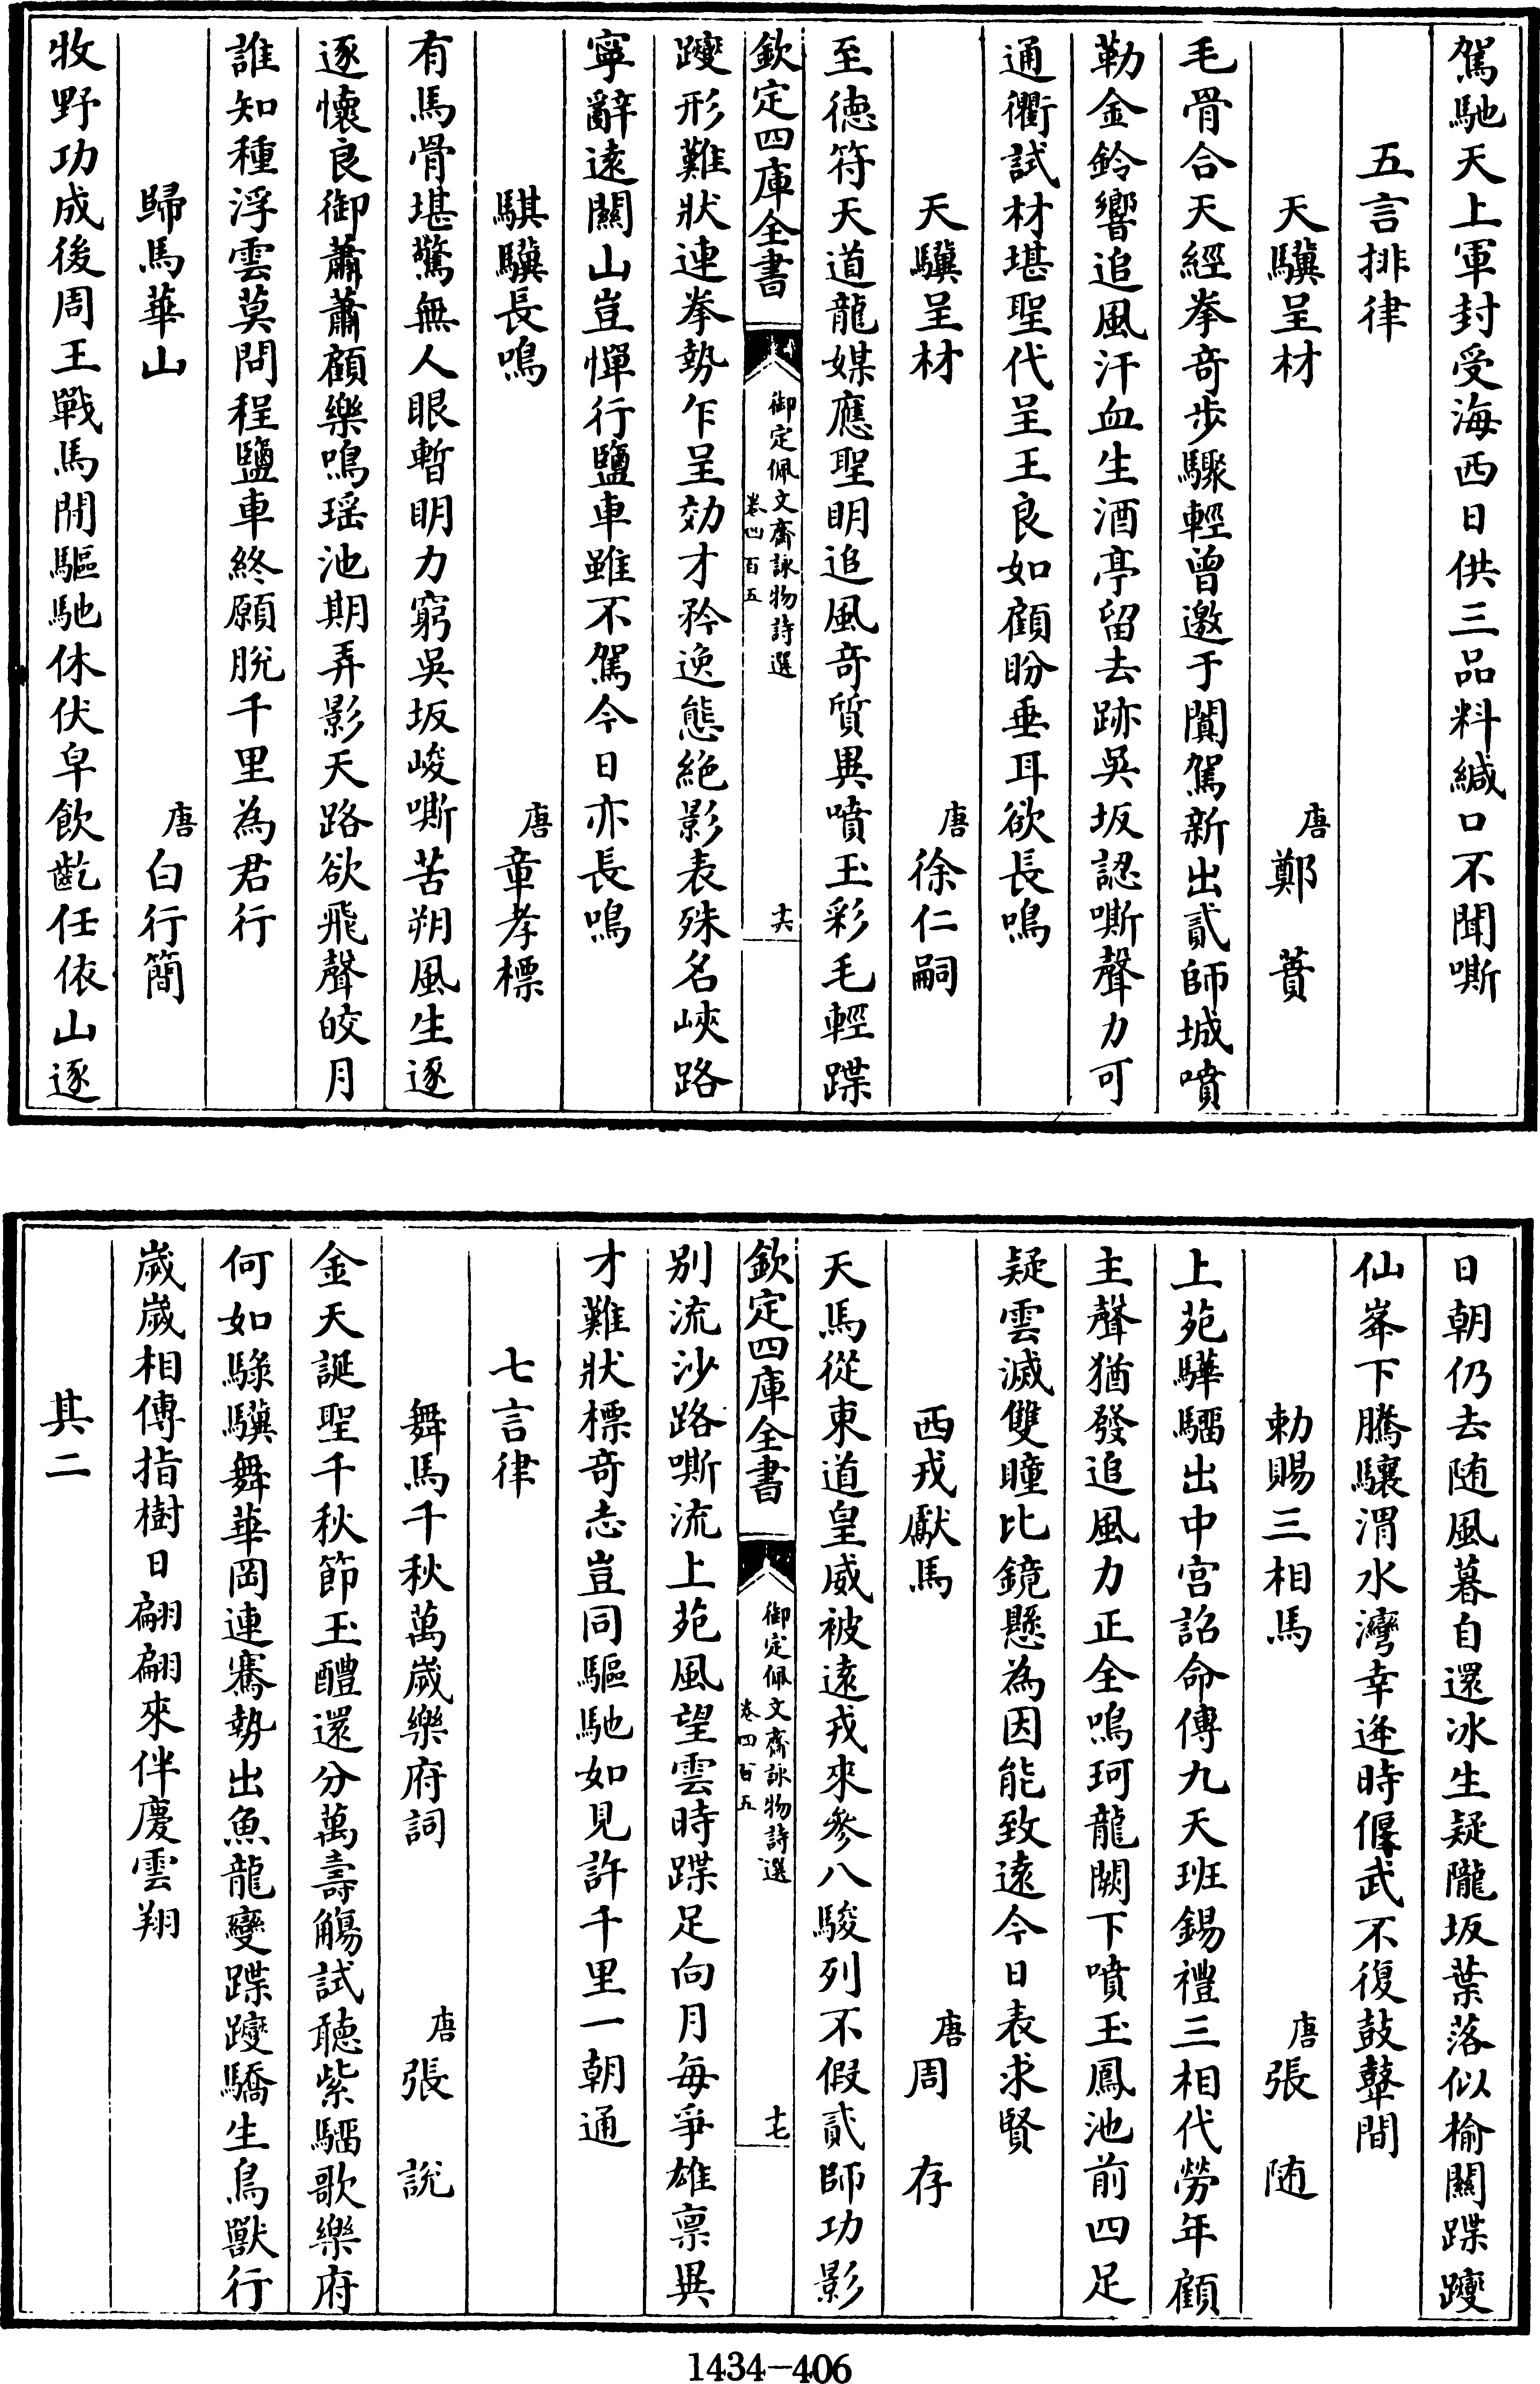 駕馳天上軍封受海西日供三品料緘口不聞嘶
五言排律
天驥呈材 唐 鄭蕡
毛骨合天經拳奇步驟輕曾邀于闐駕新出貳師城噴
勒金鈴響追風汗血生酒亭留去跡吳坂認嘶聲力可
通衢試材堪聖代呈王良如顧盼垂耳欲長鳴
天驥呈材 唐 徐仁嗣
至德符天道龍媒應聖明追風奇質異噴玉彩毛輕蹀
欽定四庫全書 御定佩文齋詠物詩選 卷四百五 十六
躞形難狀連拳勢乍呈効才矜逸態絶影表殊名峽路
寧辭遠關山豈憚行鹽車雖不駕今日亦長鳴
騏驥長鳴 唐 章孝標
有馬骨堪驚無人眼暫明力窮吳坂峻嘶苦朔風生逐
逐懷良御蕭蕭顧樂鳴瑶池期弄影天路欲飛聲皎月
誰知種浮雲莫問程鹽車終願脫千里為君行
歸馬華山 唐 白行簡
牧野功成後周王戰馬閒驅馳休伏皁飲齕任依山逐
日朝仍去随風暮自還冰生疑隴坂葉落似榆關蹀躞
仙峯下騰驤渭水灣幸逢時偃武不復鼓鼙間
勅賜三相馬 唐 張随
上苑驊騮出中宮詔命傳九天班錫禮三相代勞年顧
主聲猶發追風力正全鳴珂龍闕下噴玉鳳池前四足
疑雲滅雙瞳比鏡懸為因能致遠今日表求賢
西戎獻馬 唐 周存
天馬從東道皇威被遠戎來參八駿列不假貳師功影
欽定四庫全書 御定佩文齋詠物詩選 卷四百五 十七
别流沙路嘶流上苑風望雲時蹀足向月每爭雄禀異
才難狀標奇志豈同驅馳如見許千里一朝通
七言律
舞馬千秋萬歲樂府詞 唐 張說
金天誕聖千秋節玉醴還分萬壽觴試聽紫騮歌樂府
何如騄驥舞華岡連騫勢出魚龍變蹀躞驕生鳥獸行
歲歲相傳指樹日翩翩來伴慶雲翔
其二
1434-406